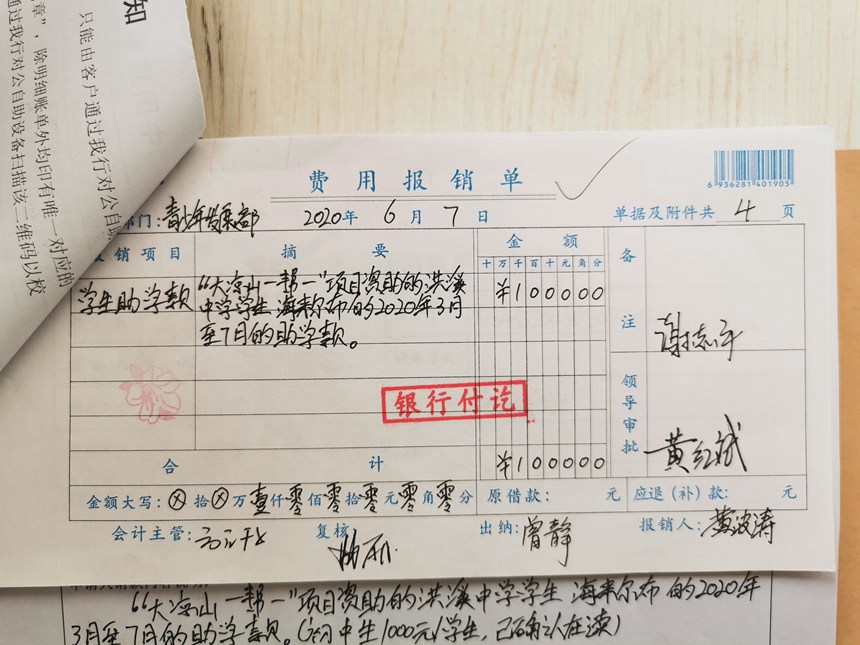 知
只能由客户通过我行对公自助
章”，除明细账单外均印有唯一对应的
通过我行对公自助设备扫描该二维码以校
费用报销单
6 936281 401905
部门：青少年发展部 2020年 6月 7日 单据及附件共 4 页
报销项目 摘要 金额 备注
十万千百十元角分
学生助学款 “大凉山一帮一”项目资助的洪溪 ¥100000
中学学生 海来尔布的2020年3月
至7月的助学款。
谢志平
领导审批
银行付讫
黄红斌
合计 ¥100000
金额大写：ⓧ拾ⓧ万壹仟零佰零拾零元零角零分 原借款： 元 应退（补）款： 元
会计主管： 复核 出纳：曾静 报销人：黄波涛
“大凉山一帮一”项目资助的洪溪中学学生 海来尔布 的2020年
3月至7月的助学款。（初中生1000元/学生，已确认在读）